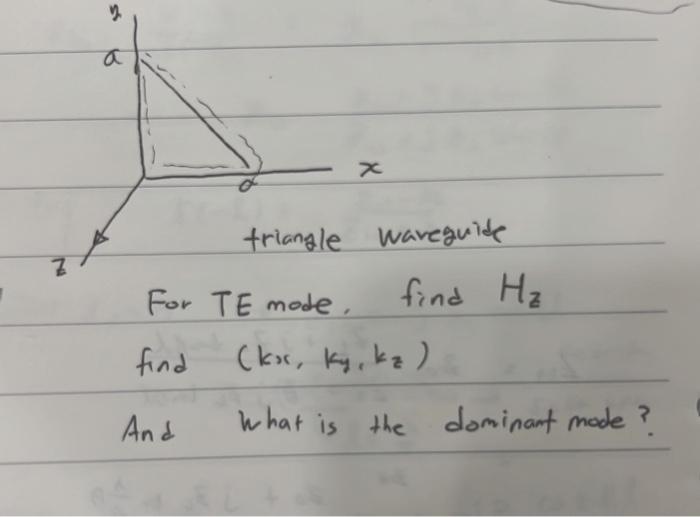 y
a
x
a
z
triangle waveguide
For TE mode, find Hz
find (kx, ky, kz)
And What is the dominant mode?